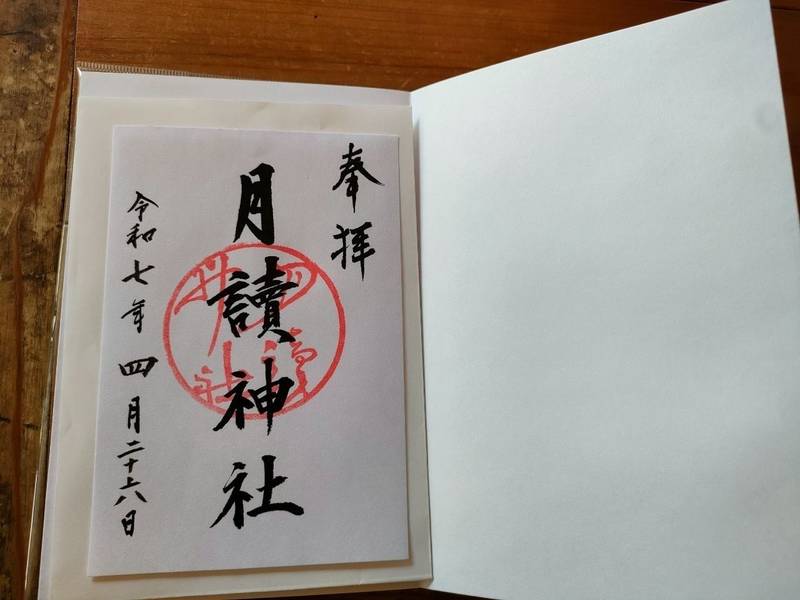 奉拝
月讀神社
令和七年四月二十六日